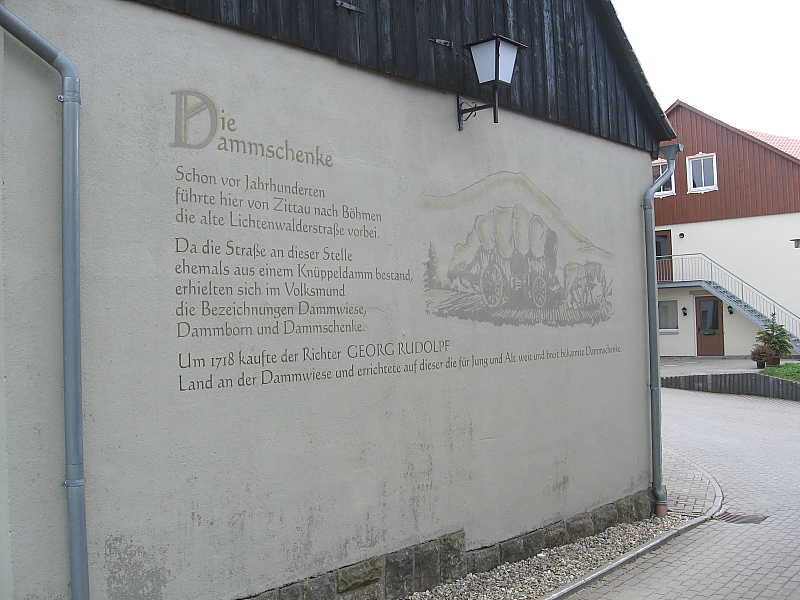 Die
Dammschenke
Schon vor Jahrhunderten
führte hier von Zittau nach Böhmen
die alte Lichtenwalderstraße vorbei.
Da die Straße an dieser Stelle
ehemals aus einem Knüppeldamm bestand,
erhielten sich im Volksmund
die Bezeichnungen Dammwiese,
Dammborn und Dammschenke.
Um 1718 kaufte der Richter GEORG RUDOLPF
Land an der Dammwiese und errichtete auf dieser die für Jung und Alt weit und breit bekannte Dammschenke.